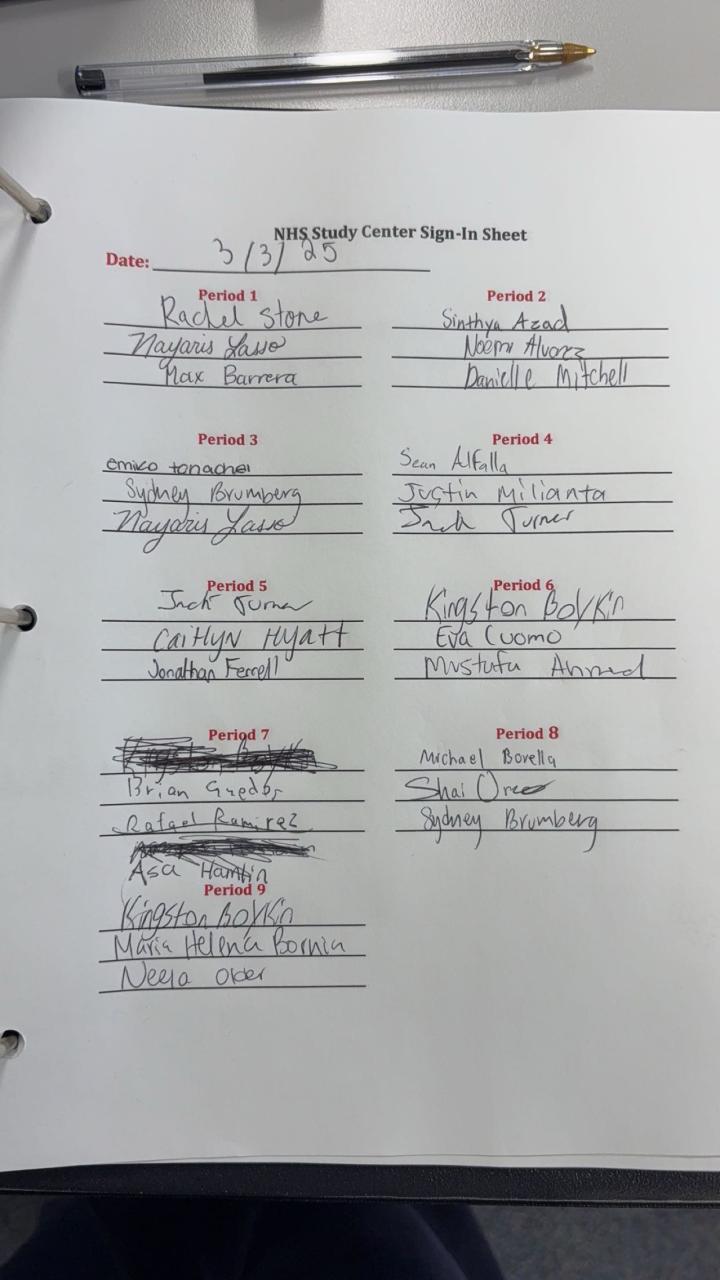 NHS Study Center Sign-In Sheet
Date: 3/3/25
Period 1
Rachel Stone
Nayaris Lasso
Max Barrera
Period 2
Sinthya Azad
Noemi Alvarez
Danielle Mitchell
Period 3
emico tonachel
Sydney Brumberg
Nayaris Lasso
Period 4
Sean Alfalla
Justin Milianta
Jack Turner
Period 5
Jack Turner
CaitLyn Hyatt
Jonathan Ferrell
Period 6
Kingston Boykin
Eva Cuomo
Mustufa Ahmed
Period 7
Brian
Rafael Ramirez
Asa Hamlin
Period 8
Michael Borella
Shai
Sydney Brumberg
Period 9
Kingston Boykin
Maria Helena Bornia
Neela